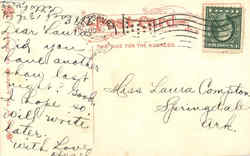 Post Card
THIS SIDE FOR THE ADDRESS
Dear Laura
Did you
have another
show last
night? Good
I hope so.
Will write
later.
With Love
Miss Laura Compton
Springdale
Ark.